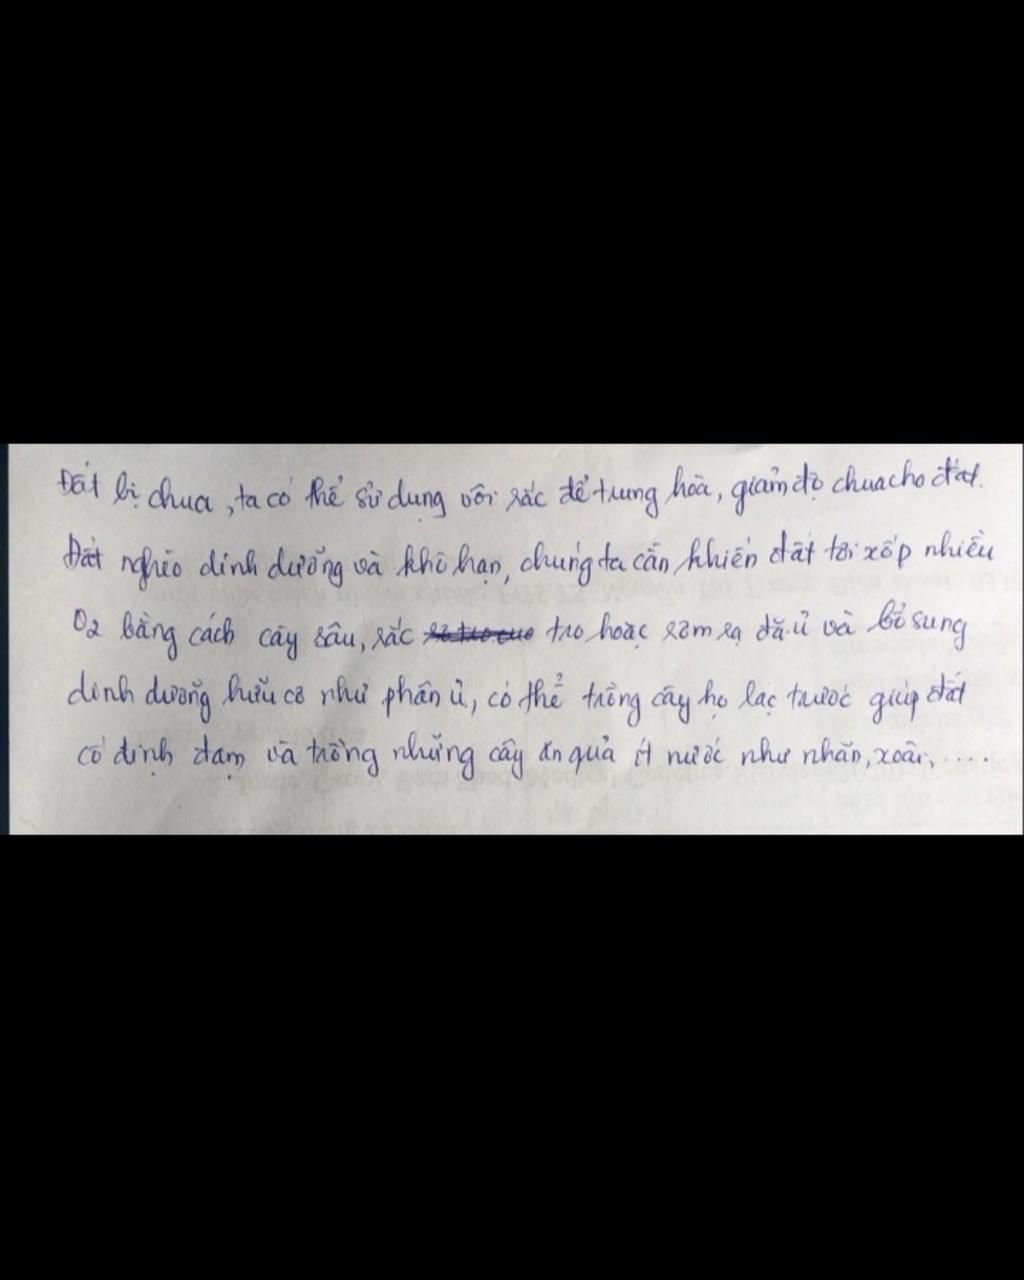 Đất bị chua, ta có thể sử dụng vôi rắc để trung hòa, giảm độ chua cho đất.
Đất nghèo dinh dưỡng và khô hạn, chúng ta cần khiến đất tơi xốp nhiều
O2 bằng cách cày sâu, rắc tro hoặc rơm rạ đã ủ và bổ sung
dinh dưỡng hữu cơ như phân ủ, có thể trồng cây họ lạc trước giúp đất
cố định đạm và trồng những cây ăn quả ít nước như nhãn, xoài, ....